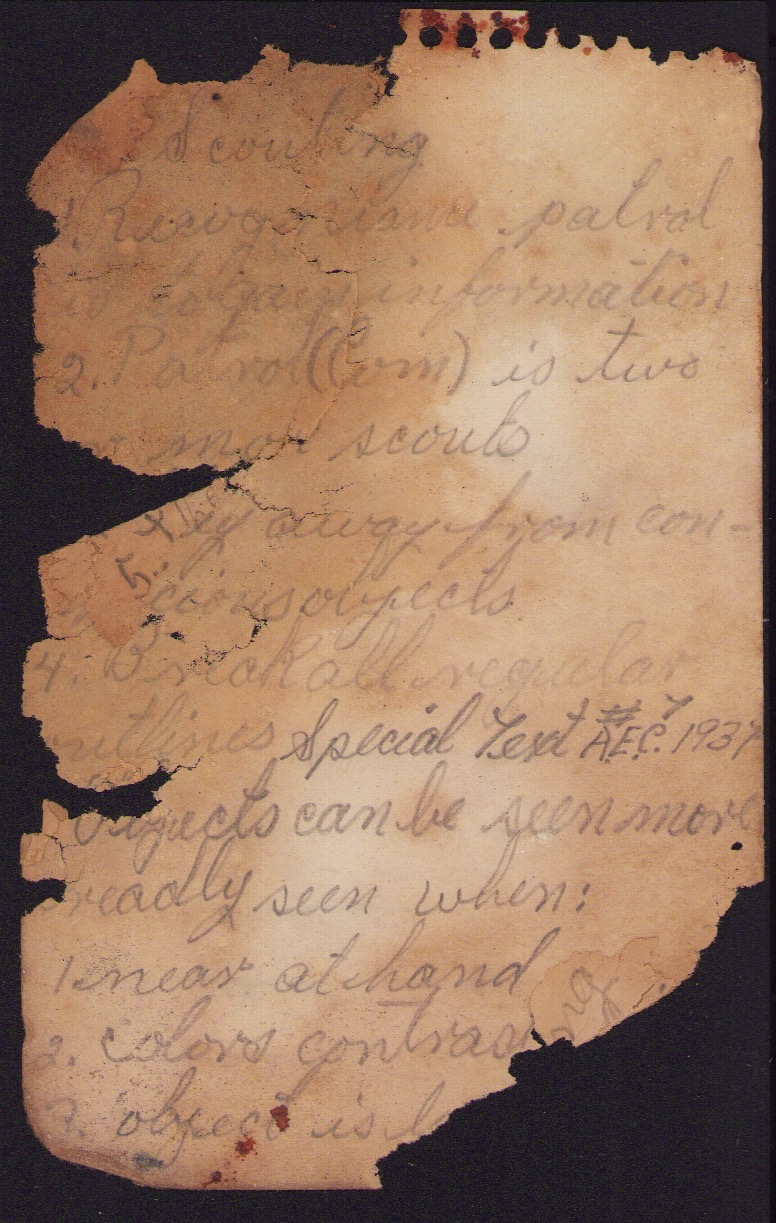 Scouting
1. patrol
is to gain information
2. Patrol (Com) is two
or mor scouts
away from con-
cious objects
4. Break all regular
outlines Special Text #7 A.E.C. 1937
Objects can be seen more
readly seen when:
1. near at hand
2. Colors contras
3. object is